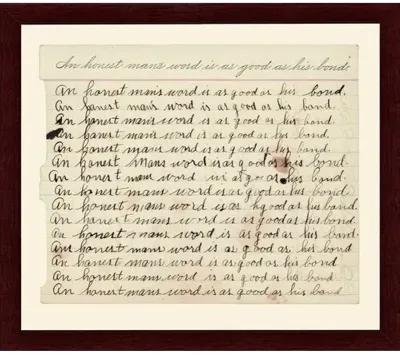 An honest mans word is as good as his bond.
An honest man's word is as good as his bond.
An honest man's word is as good as his bond.
An honest man's word is as good as his bond.
An honest man's word is as good as his bond.
An honest man's word is as good as his bond.
An honest mans word is as good as his bond.
An honest man word is as good as his bond.
An honest man's word is as good as his bond.
An honest mans word is as good as his bond.
An honest mans word is as good as his bond.
An honest mans word is as good as his bond.
An honest mans word is as good as his bond
An honest mans word is as good as his bond
An honest mans word is as good as his bond